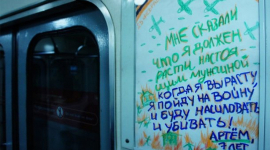 МНЕ СКАЗАЛИ
ЧТО Я ДОЛЖЕН
РАСТИ НАСТОЯ
ЩИМ МУЖЧИНОЙ
КОГДА Я ВЫРАСТУ,
Я ПОЙДУ НА ВОЙНУ
И БУДУ НАСИЛОВАТЬ
И УБИВАТЬ!
АРТЁМ,
7 ЛЕТ